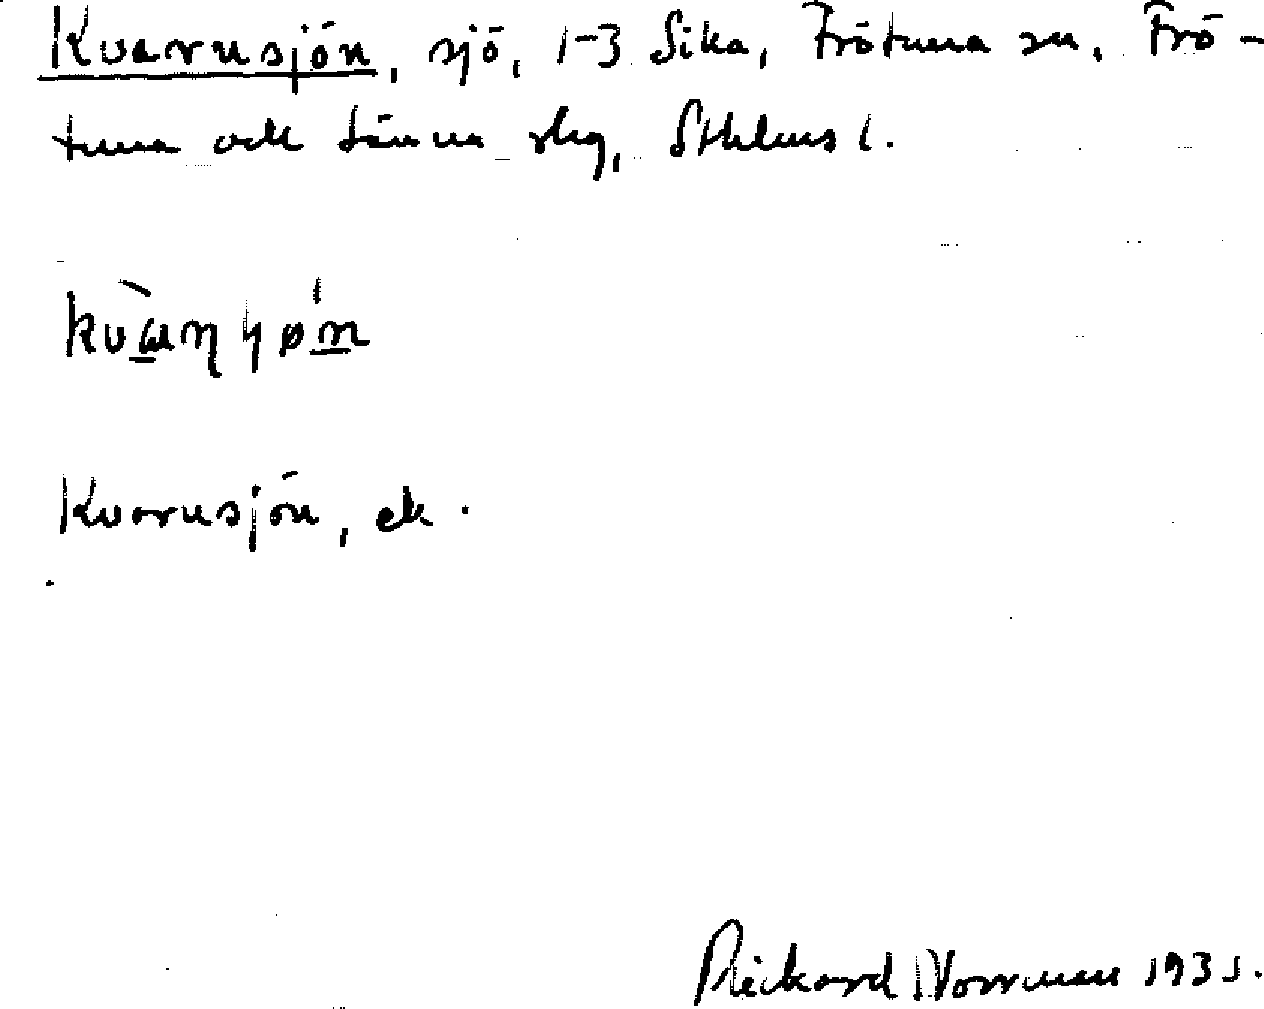 Kvarnsjön, sjö, 1-3 Sika, Frötuna sn, Frö-
tuna och Länna skg, Sthlms l.
Kvarnsjön, ek.
Rickard Norrman 1931.